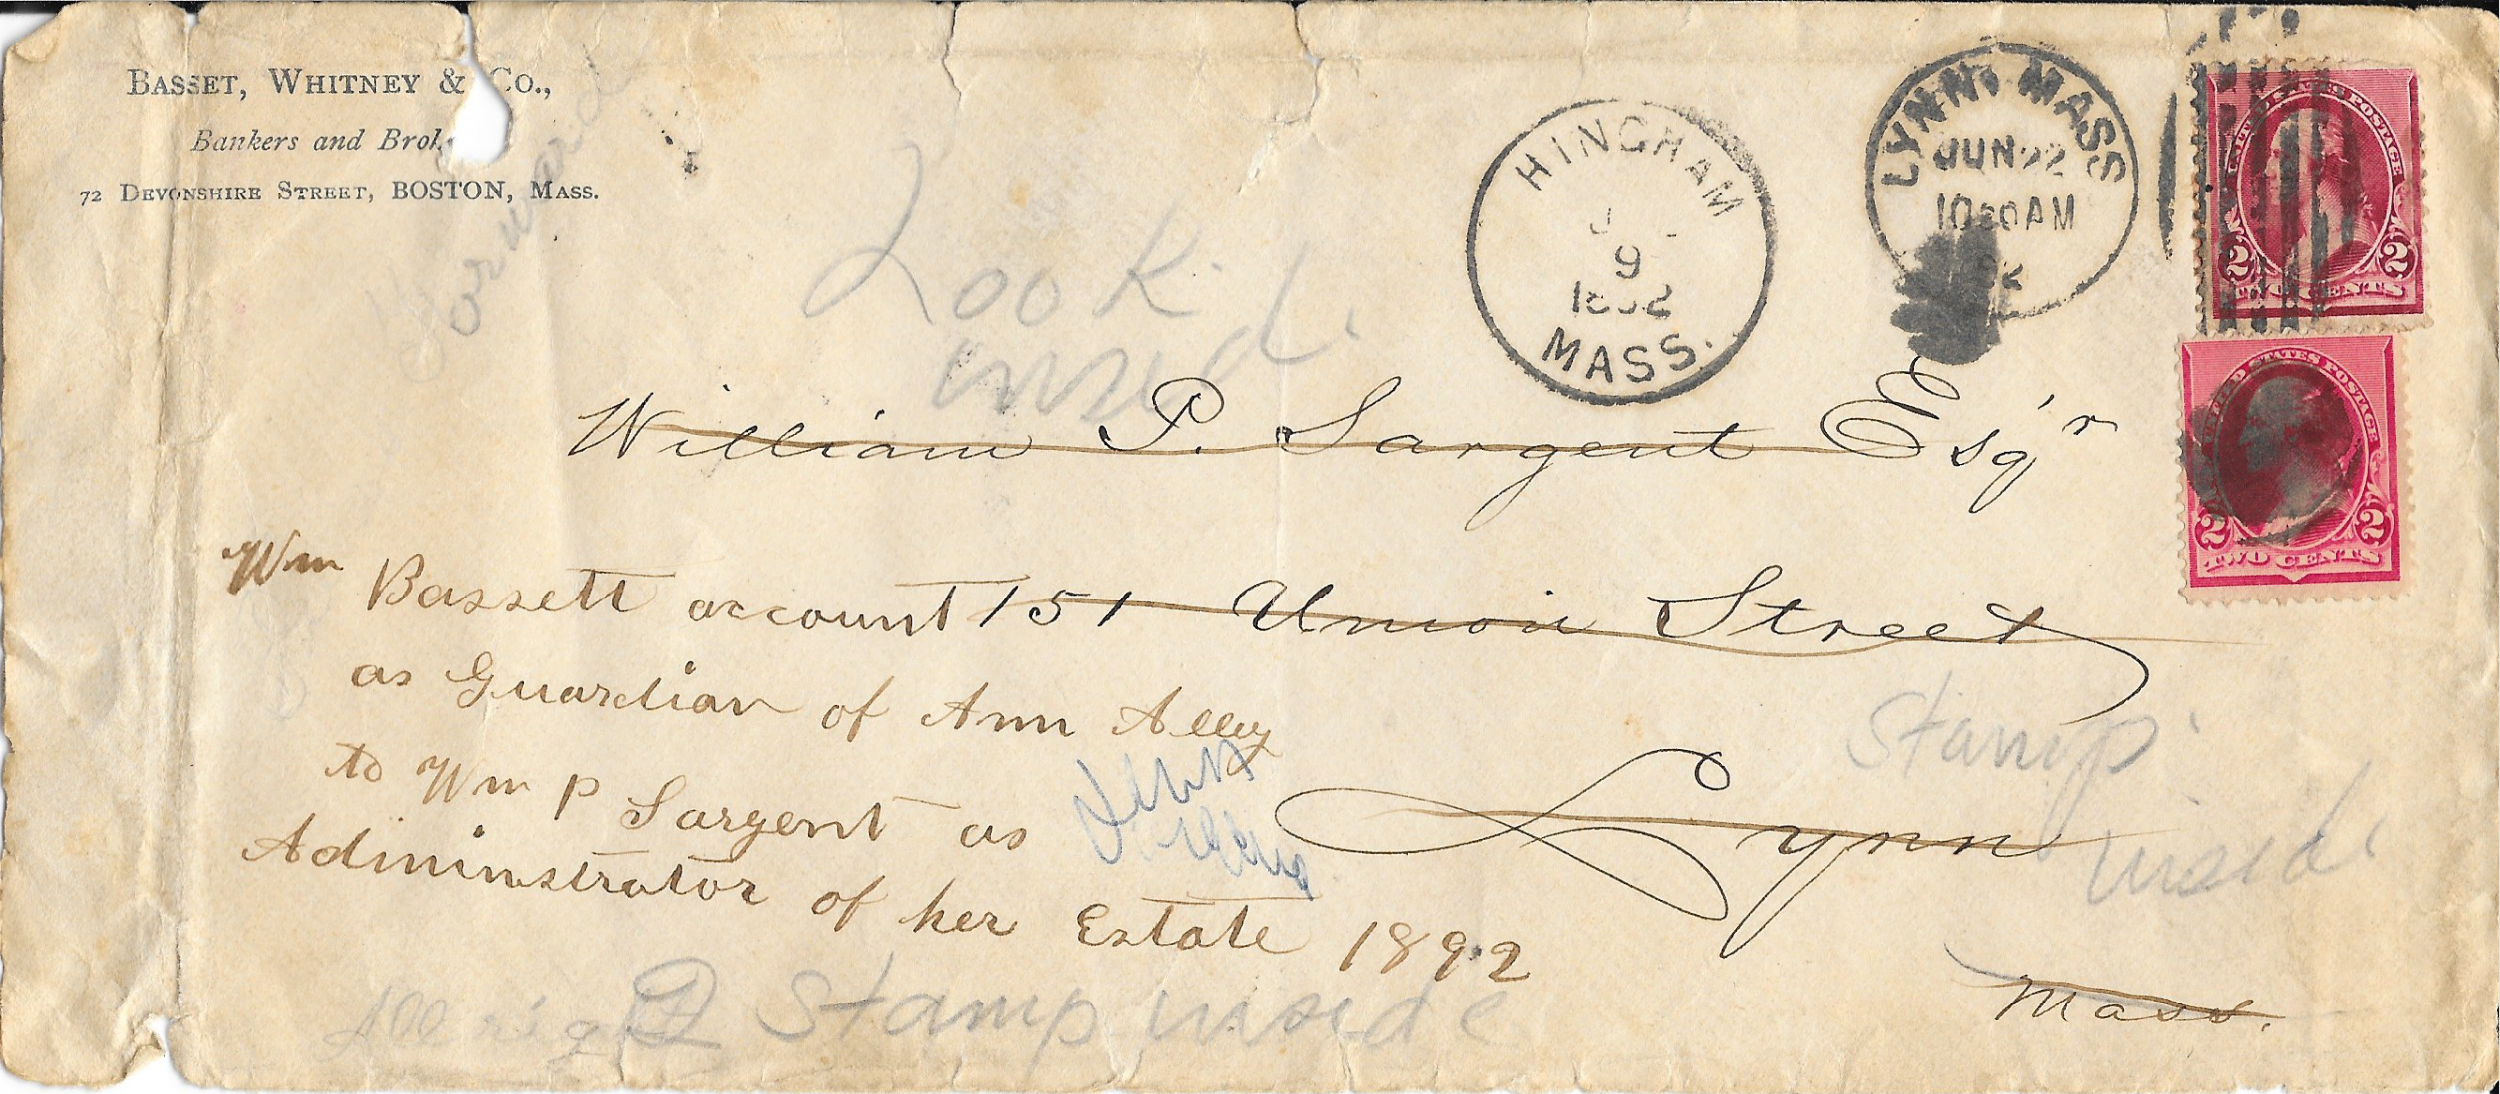 BASSET, WHITNEY & CO.,
Bankers and Brok
72 DEVONSHIRE STREET, BOSTON, MASS.
Forward
Look
insid
HINGHAM
9
1892
MASS.
LYNN, MASS
JUN 22
AM
92
UNITED STATES POSTAGE
2 2
TWO CENTS
UNITED STATES POSTAGE
2 2
TWO CENTS
William P. Sargent Esq'r
151 Union Street
Lynn
Mass.
Wm Bassett account
as Guardian of Ann Alley
to Wm P Sargent as
Administrator of her Estate 1892
Stamp
insid
Stamp inside